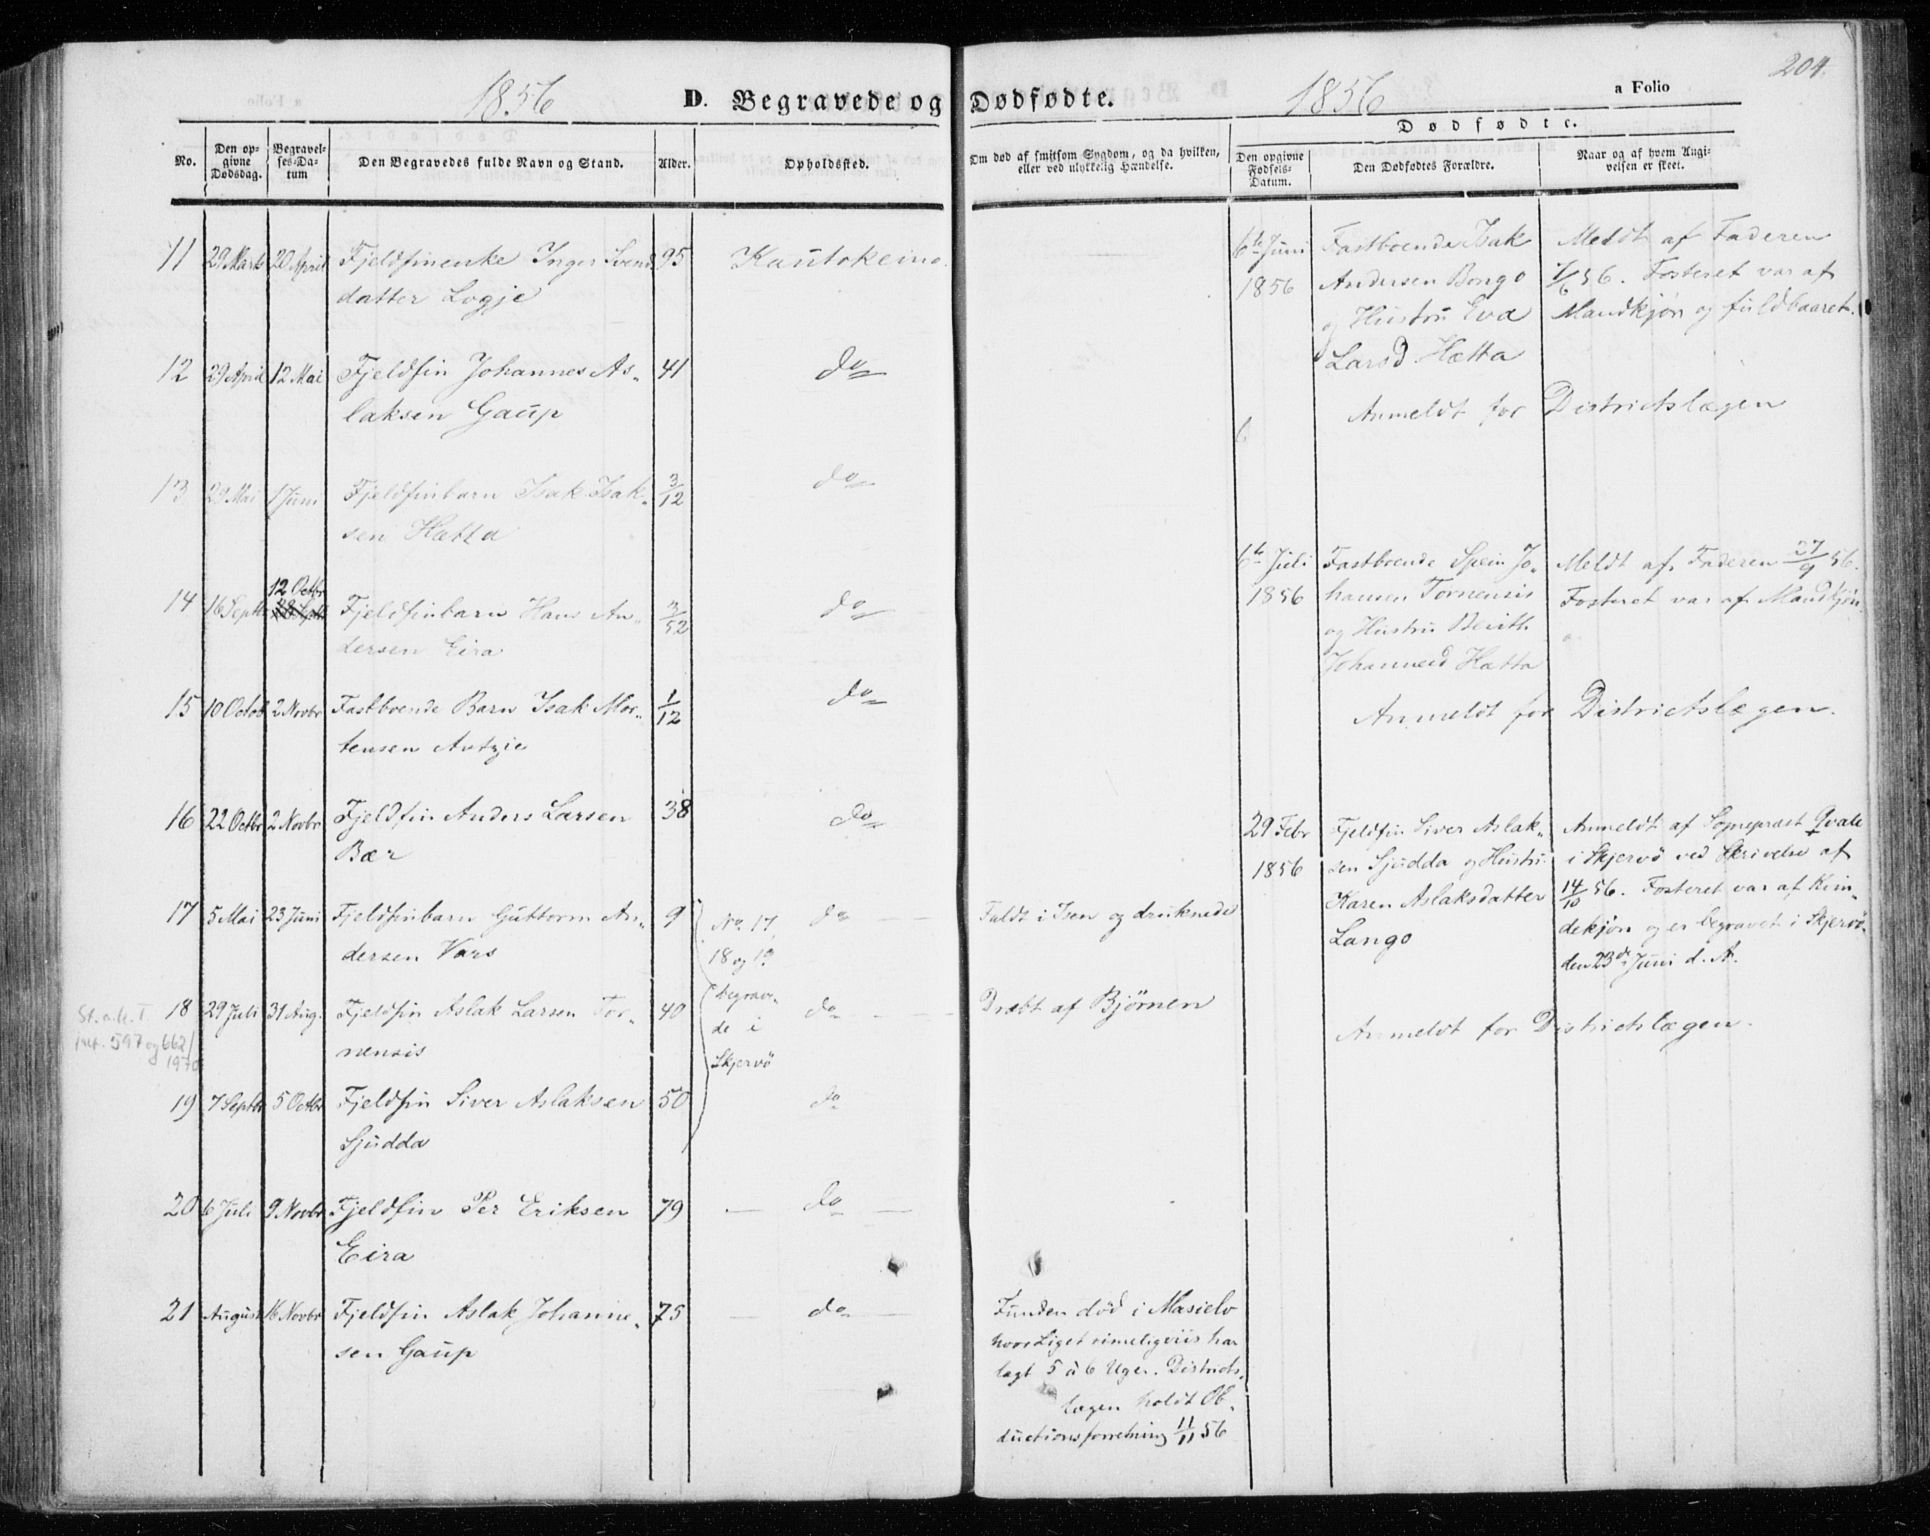 204.
1856 D. Begravede og Dødfødte. 1856 a Folio
No.
Den opgivne Dødsdag.
Begravelses-Datum
Den Begravedes fulde Navn og Stand.
Alder.
Opholdssted.
Om død af smitsom Sygdom, og da hvilken,
eller ved ulykkelig Hændelse.
Dødfødte.
Den opgivne
Fødsels-
Datum.
Den Dødfødtes Forældre.
Naar og af hvem Angi-
velsen er skeet.
11 29 Marts 20 April Fjeldfinenke Inger Svend 95 Kautokeino.
datter Logje
12 29 April 12 Mai Fjeldfin Johannes As- 41 do
laksen Gaup
13 29 Mai 1 Juni Fjeldfinbarn Isak Isak- 3/12 do
sen Hætta
12 Octbr
14 16 Septb 28 Septb Fjeldfinbarn Hans An- 3/52 do
dersen Eira
15 10 Octob 2 Novbr Fastboende Barn Isak Mor- 1/12 do
tensen
16 22 Octbr 2 Novbr Fjeldfin Anders Larsen 38 do
Bær
17 5 Mai 23 Juni Fjeldfinbarn Guttorm An- 9 do Faldt i Isen og druknede
dersen Vars
No. 17,
18 og 19
begrav-
de i
Skjervö
18 29 Juli 31 Aug. Fjeldfin Aslak Larsen Tor- 40 do Dræbt af Bjørnen
nensis
St.a.k.T.
597 og 662/
1970
19 7 Septbr 5 Octbr Fjeldfin Siver Aslaksen 50 do
Sjudda
20 6 Juli 9 Novbr Fjeldfin Per Eriksen 79 — do —
Eira
21 August 16 Novbr Fjeldfin Aslak Johanne- 75 — do —
sen Gaup
Funden död i Masielv
hvor Liget rimeligviis har
lagt 5 à 6 Uger. Districts-
lægen holdt Ob-
ductionsforretning 11/11 56
6te Juni
1856
Fastboende Isak
Andersen Bongo
og Hustru Eva
Larsd Hætta
Meldt af Faderen
7/6 56. Fosteret var af
Mandkjøn og fuldbaaret.
Anmeldt for Districtslægen
6te Juli
1856
Fastboende Spein Jo-
hansen Tornensis
og Hustru Berith
Johannesd Hætta
Meldt af Faderen 27/9 56.
Fosteret var af Mandkjøn
Anmeldt for Districtslægen.
29 Febr
1856
Fjeldfin Siver Aslak-
sen Sjudda og Hustru
Karen Aslaksdatter
Lango
Anmeldt af Sognepræst Qvale
i Skjervö ved Skrivelse af
14/10 56. Fosteret var af Kvin-
dekjøn og er begravet i Skjervö
den 23de Juni d. A.
Anmeldt for Districtslægen.